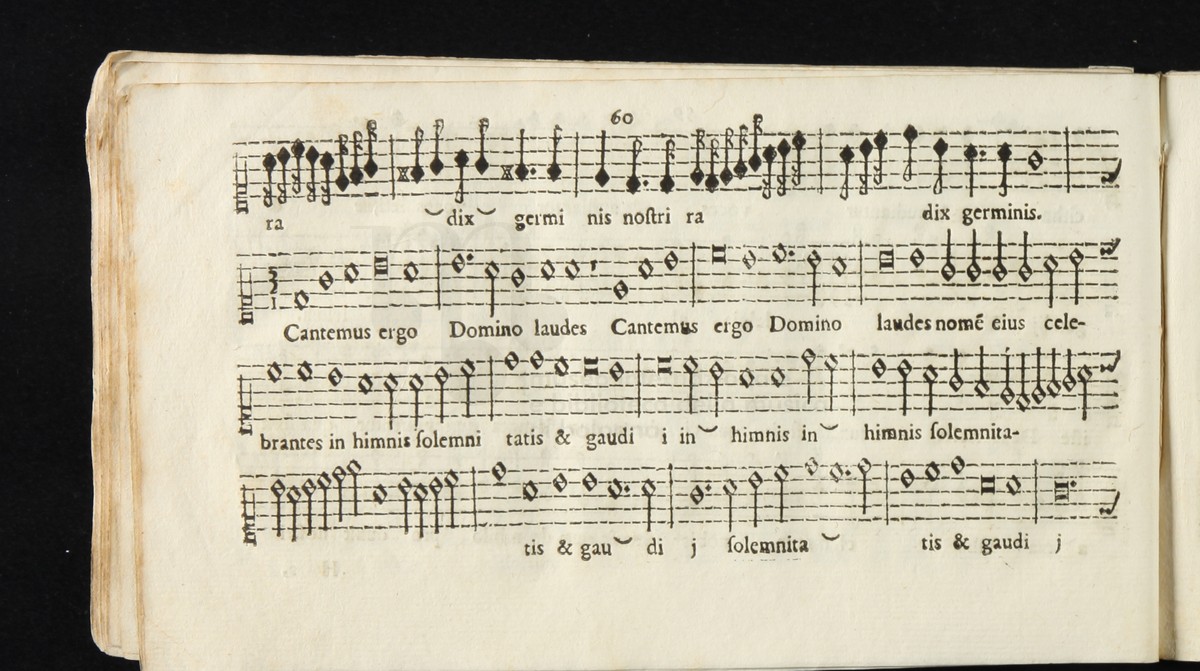 60
ra dix germi nis noſtri ra dix germinis.
3
2
1
Cantemus ergo Domino laudes Cantemus ergo Domino laudes nomē eius cele-
brantes in himnis ſolemni tatis & gaudi i in himnis in himnis ſolemnita-
tis & gau di j ſolemnita tis & gaudi j